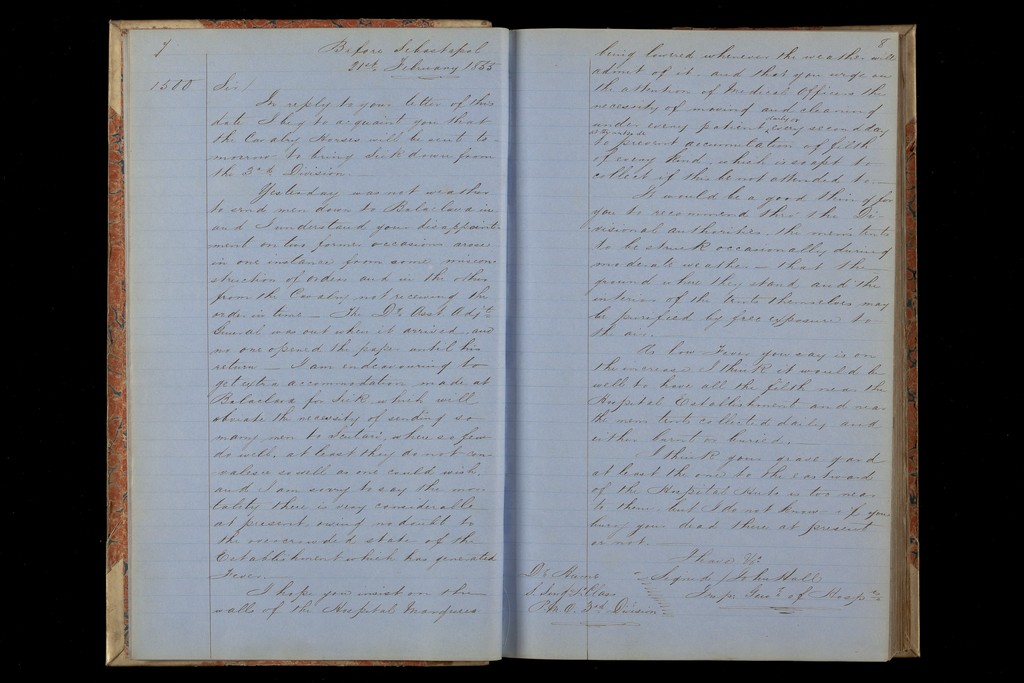 7
Before Sebastopol
21st February 1855
1500
Sir/
In reply to your letter of this
date I beg to acquaint you that
the Cavalry Horses will be sent to-
morrow to bring sick down from
the 3rd Division.
Yesterday was not weather
to send men down to Balaclava in
and I understand your disappoint-
ment on two former occasions arose
in one instance from some miscon-
struction of orders and in the other
from the Cavalry not receiving the
order in time – The Dy. Asst. Adjt.
General was out when it arrived and
no one opened the paper until his
return – I am endeavouring to
get extra accommodation made at
Balaclava for Sick which will
obviate the necessity of sending so
many men to Scutari, where so few
do well, at least they do not con-
valesce so well as one could wish
and I am sorry to say the mor-
tality there is very considerable
at present owing no doubt to
the overcrowded state of the
Establishment which has generated
Fever.
I hope you insist on the
walls of the Hospital Marquees
8
being lowered whenever the weather will
admit of it – and that you urge on
the attention of Medical Officers the
necessity of moving and cleaning
under every patient daily or every second day
to prevent accumulation of filth
of every kind, which is so apt to
collect if this be not attended to –
It would be a good thing for
you to recommend thro' the Di-
visional authorities, the men's tents
to be struck occasionally during
moderate weather – that the
ground where they stand and the
interior of the tents themselves may
be purified by free exposure to
the air.
As low Fever you say is on
the increase I think it would be
well to have all the filth near the
Hospital Establishment and near
the mens tents collected daily and
either burnt or buried.
I think your grave yard
at least the one to the eastward
of the Hospital Huts is too near
to them, but I do not know if you
bury your dead there at present
or not.
I have &c
Signed / John Hall
Insp. Genl. of Hospls
Dr Hume
S. Surgn. 1st Class
P.M.O. 3rd Division